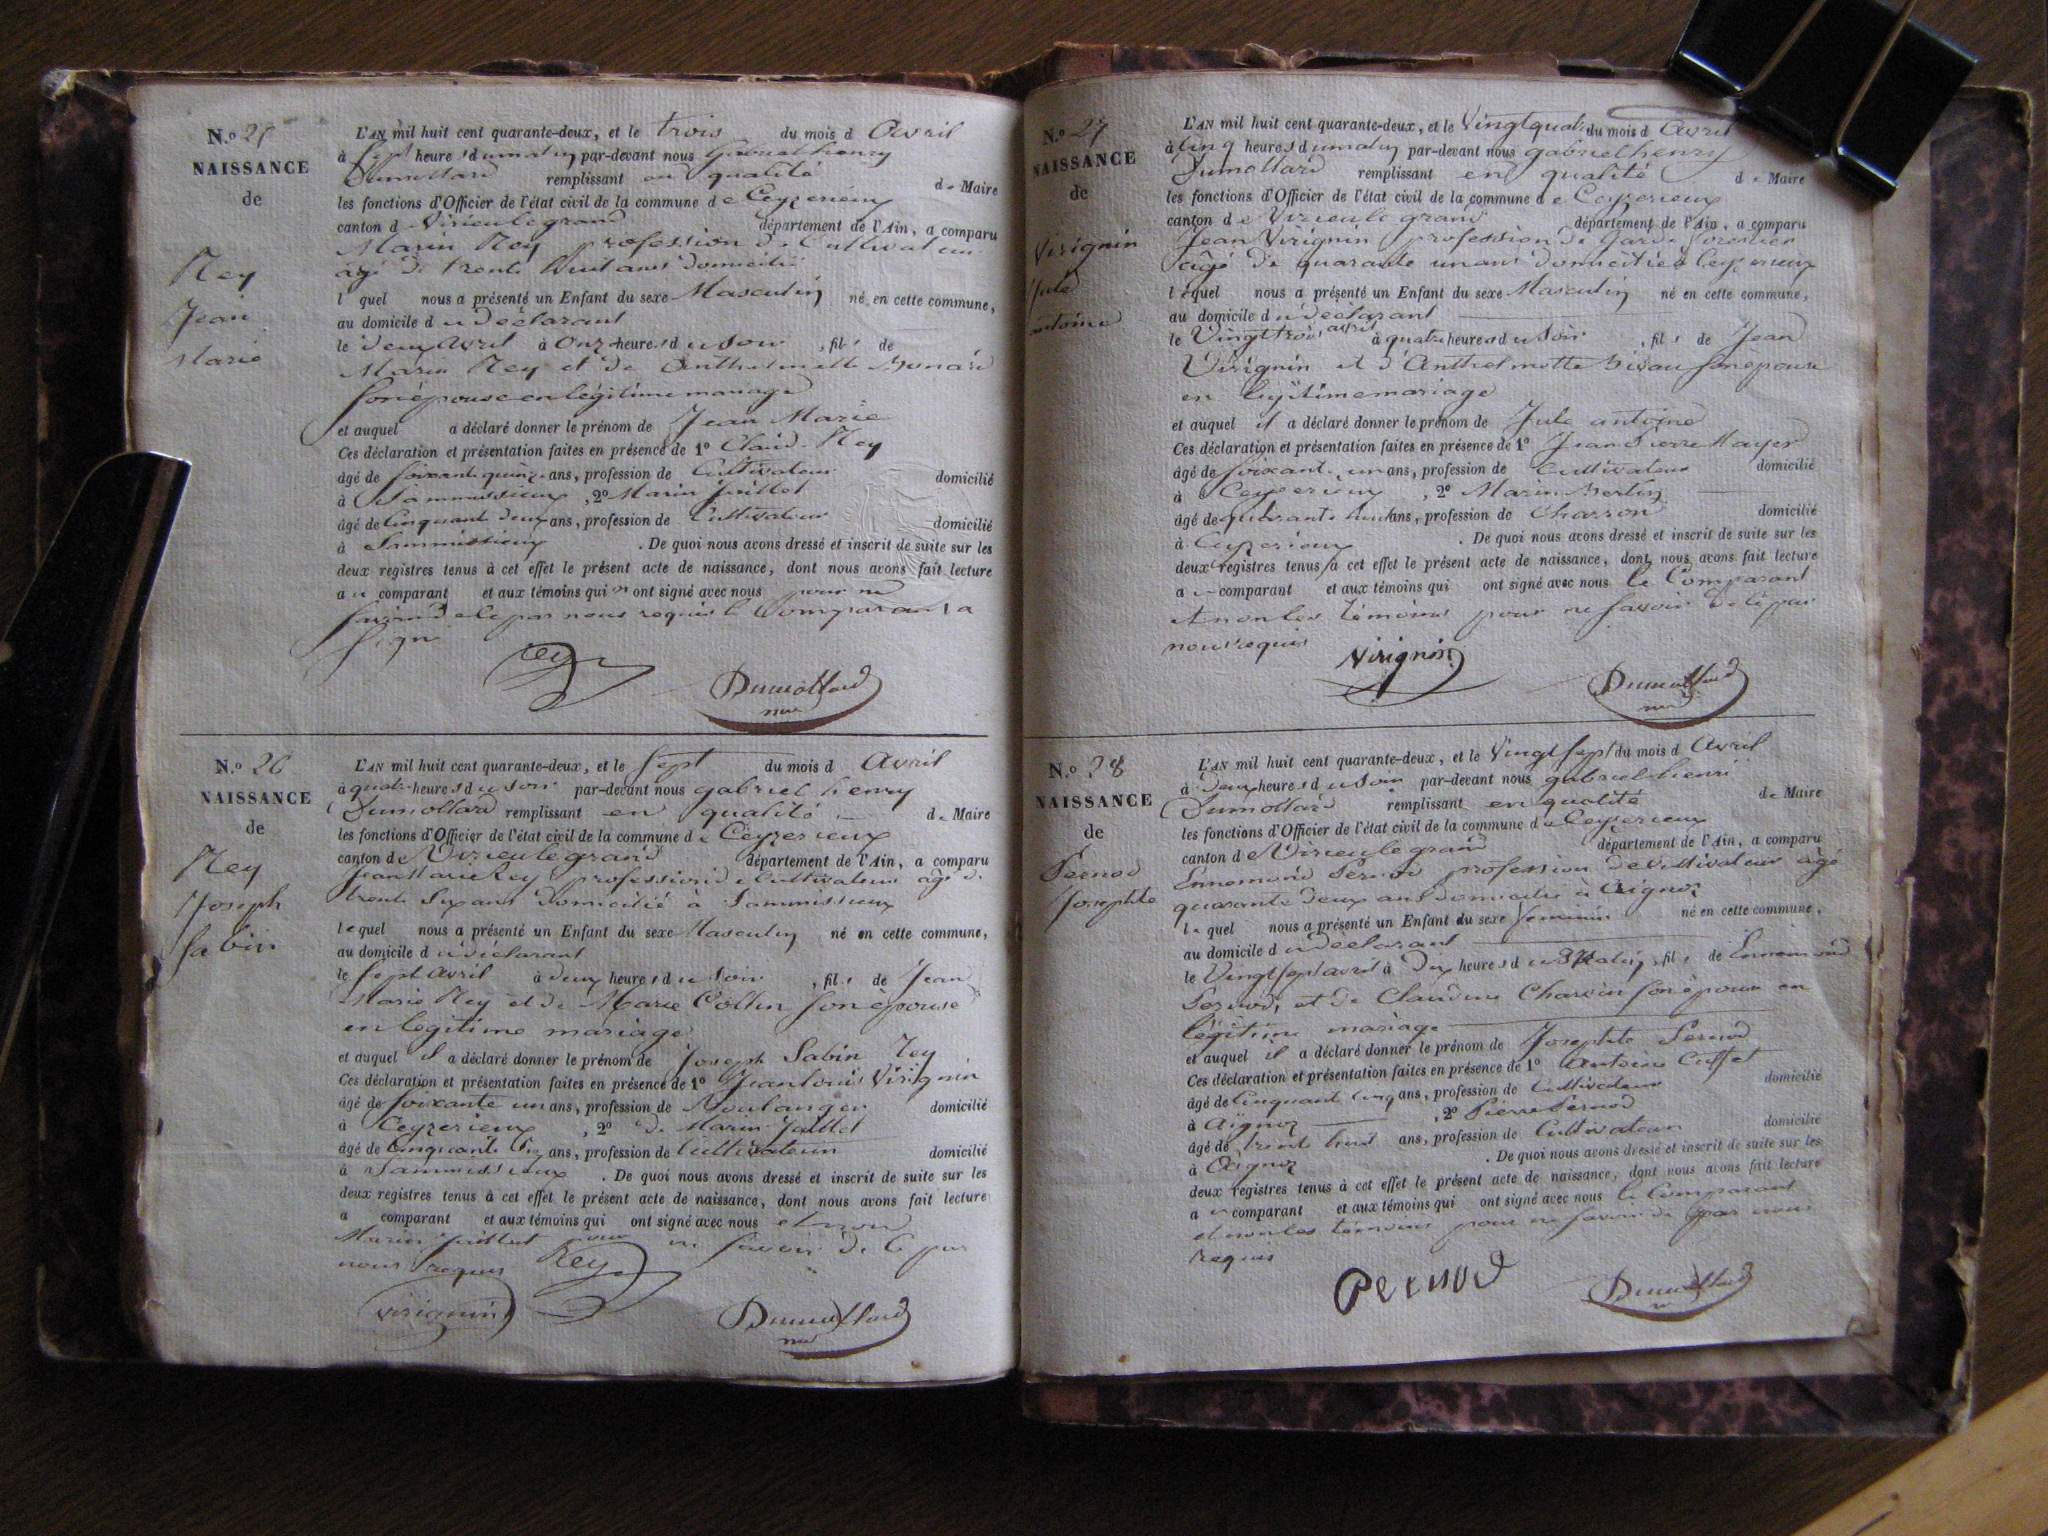 N.o 25
NAISSANCE
de
Rey
Jean
Marie
L'AN mil huit cent quarante-deux, et le trois du mois d Avril
à Sept heure s du matin par-devant nous Gabriel henry
Dumollard remplissant en qualité de Maire
les fonctions d'Officier de l'état civil de la commune de Ceyzerieux
canton d Virieu le grand département de l'Ain, a comparu
Marin Rey profession de Cultivateur
âgé de trente huit ans domicilié
l quel nous a présenté un Enfant du sexe Masculin né en cette commune,
au domicile du Déclarant
le deux avril à Onze heures du Soir, fils de
Marin Rey et de Anthelmette Bonard
son épouse en légitime mariage
et auquel a déclaré donner le prénom de Jean Marie
Ces déclaration et présentation faites en présence de 1o Claude Rey
âgé de soixante quinze ans, profession de Cultivateur domicilié
à Sammissieux, 2o Marin Juillet
âgé de Cinquante deux ans, profession de Cultivateur domicilié
à Sammissieux. De quoi nous avons dressé et inscrit de suite sur les
deux registres tenus à cet effet le présent acte de naissance, dont nous avons fait lecture
au comparant et aux témoins qui n'ont signé avec nous pour ne
savoir de ce par nous requis le Comparant a
signé
Rey
Dumollard
mre
N.o 26
NAISSANCE
de
Rey
Joseph
Sabin
L'AN mil huit cent quarante-deux, et le sept du mois d Avril
à quatre heures du soir par-devant nous gabriel henry
Dumollard remplissant en qualité de Maire
les fonctions d'Officier de l'état civil de la commune de Ceyzerieux
canton de Virieu le grand département de l'Ain, a comparu
Jean Marie Rey profession de Cultivateur âgé de
trente Six ans domicilié à Sammissieux
lequel nous a présenté un Enfant du sexe Masculin né en cette commune,
au domicile du déclarant
le sept avril à deux heures du Soir, fils de Jean
Marie Rey et de Marie Collin son épouse
en légitime mariage
et auquel il a déclaré donner le prénom de Joseph Sabin Rey
Ces déclaration et présentation faites en présence de 1o Jean louis Virignin
âgé de soixante un ans, profession de Boulanger domicilié
à Ceyzerieux, 2o de Marin Juillet
âgé de Cinquante Six ans, profession de Cultivateur domicilié
à Sammissieux. De quoi nous avons dressé et inscrit de suite sur les
deux registres tenus à cet effet le présent acte de naissance, dont nous avons fait lecture
a comparant et aux témoins qui ont signé avec nous et non
Marin Juillet pour ne savoir de ce par
nous requis Rey
Virignin
Dumollard
mre
N.o 27
NAISSANCE
de
Virignin
Jule
antoine
L'AN mil huit cent quarante-deux, et le Vingt quatre du mois d Avril
à Cinq heures du matin par-devant nous gabriel henry
Dumollard remplissant en qualité de Maire
les fonctions d'Officier de l'état civil de la commune de Ceyzerieux
canton de Virieu le grand département de l'Ain, a comparu
Jean Virignin profession de garde forestier
âgé de quarante un ans domicilié à Ceyzerieux
lequel nous a présenté un Enfant du sexe Masculin né en cette commune,
au domicile du Déclarant
le Vingt trois avril à quatre heures du Soir, fils de Jean
Virignin et d'Anthelmette son épouse
en légitime mariage
et auquel il a déclaré donner le prénom de Jule antoine
Ces déclaration et présentation faites en présence de 1o Jean Pierre Mayer
âgé de soixante un ans, profession de Cultivateur domicilié
à Ceyzerieux, 2o Marin Berlin
âgé de quarante huit ans, profession de Charron domicilié
à Ceyzerieux. De quoi nous avons dressé et inscrit de suite sur les
deux registres tenus à cet effet le présent acte de naissance, dont nous avons fait lecture
au comparant et aux témoins qui ont signé avec nous le Comparant
et non les témoins pour ne savoir de ce par
nous requis
Virignin
Dumollard
mre
N.o 28
NAISSANCE
de
Pernod
Josephte
L'AN mil huit cent quarante-deux, et le Vingt sept du mois d Avril
à Deux heures du soir par-devant nous gabriel henri
Dumollard remplissant en qualité de Maire
les fonctions d'Officier de l'état civil de la commune de Ceyzerieux
canton de Virieu le grand département de l'Ain, a comparu
Ennemond Pernod profession de Cultivateur âgé
quarante deux ans domicilié à Aignoz
lequel nous a présenté un Enfant du sexe feminin né en cette commune,
au domicile du Déclarant
le Vingt sept avril à Dix heures du Matin, fils de Ennemond
Pernod, et de Claudine Charvin son épouse en
légitime mariage
et auquel il a déclaré donner le prénom de Josephte Pernod
Ces déclaration et présentation faites en présence de 1o Antoine Cuffet
âgé de Cinquante Cinq ans, profession de Cultivateur domicilié
à Aignoz, 2o Pierre Pernod
âgé de trente huit ans, profession de Cultivateur domicilié
à Aignoz. De quoi nous avons dressé et inscrit de suite sur les
deux registres tenus à cet effet le présent acte de naissance, dont nous avons fait lecture
au comparant et aux témoins qui ont signé avec nous le Comparant
et non les témoins pour ne savoir de ce par nous
requis
Pernod
Dumollard